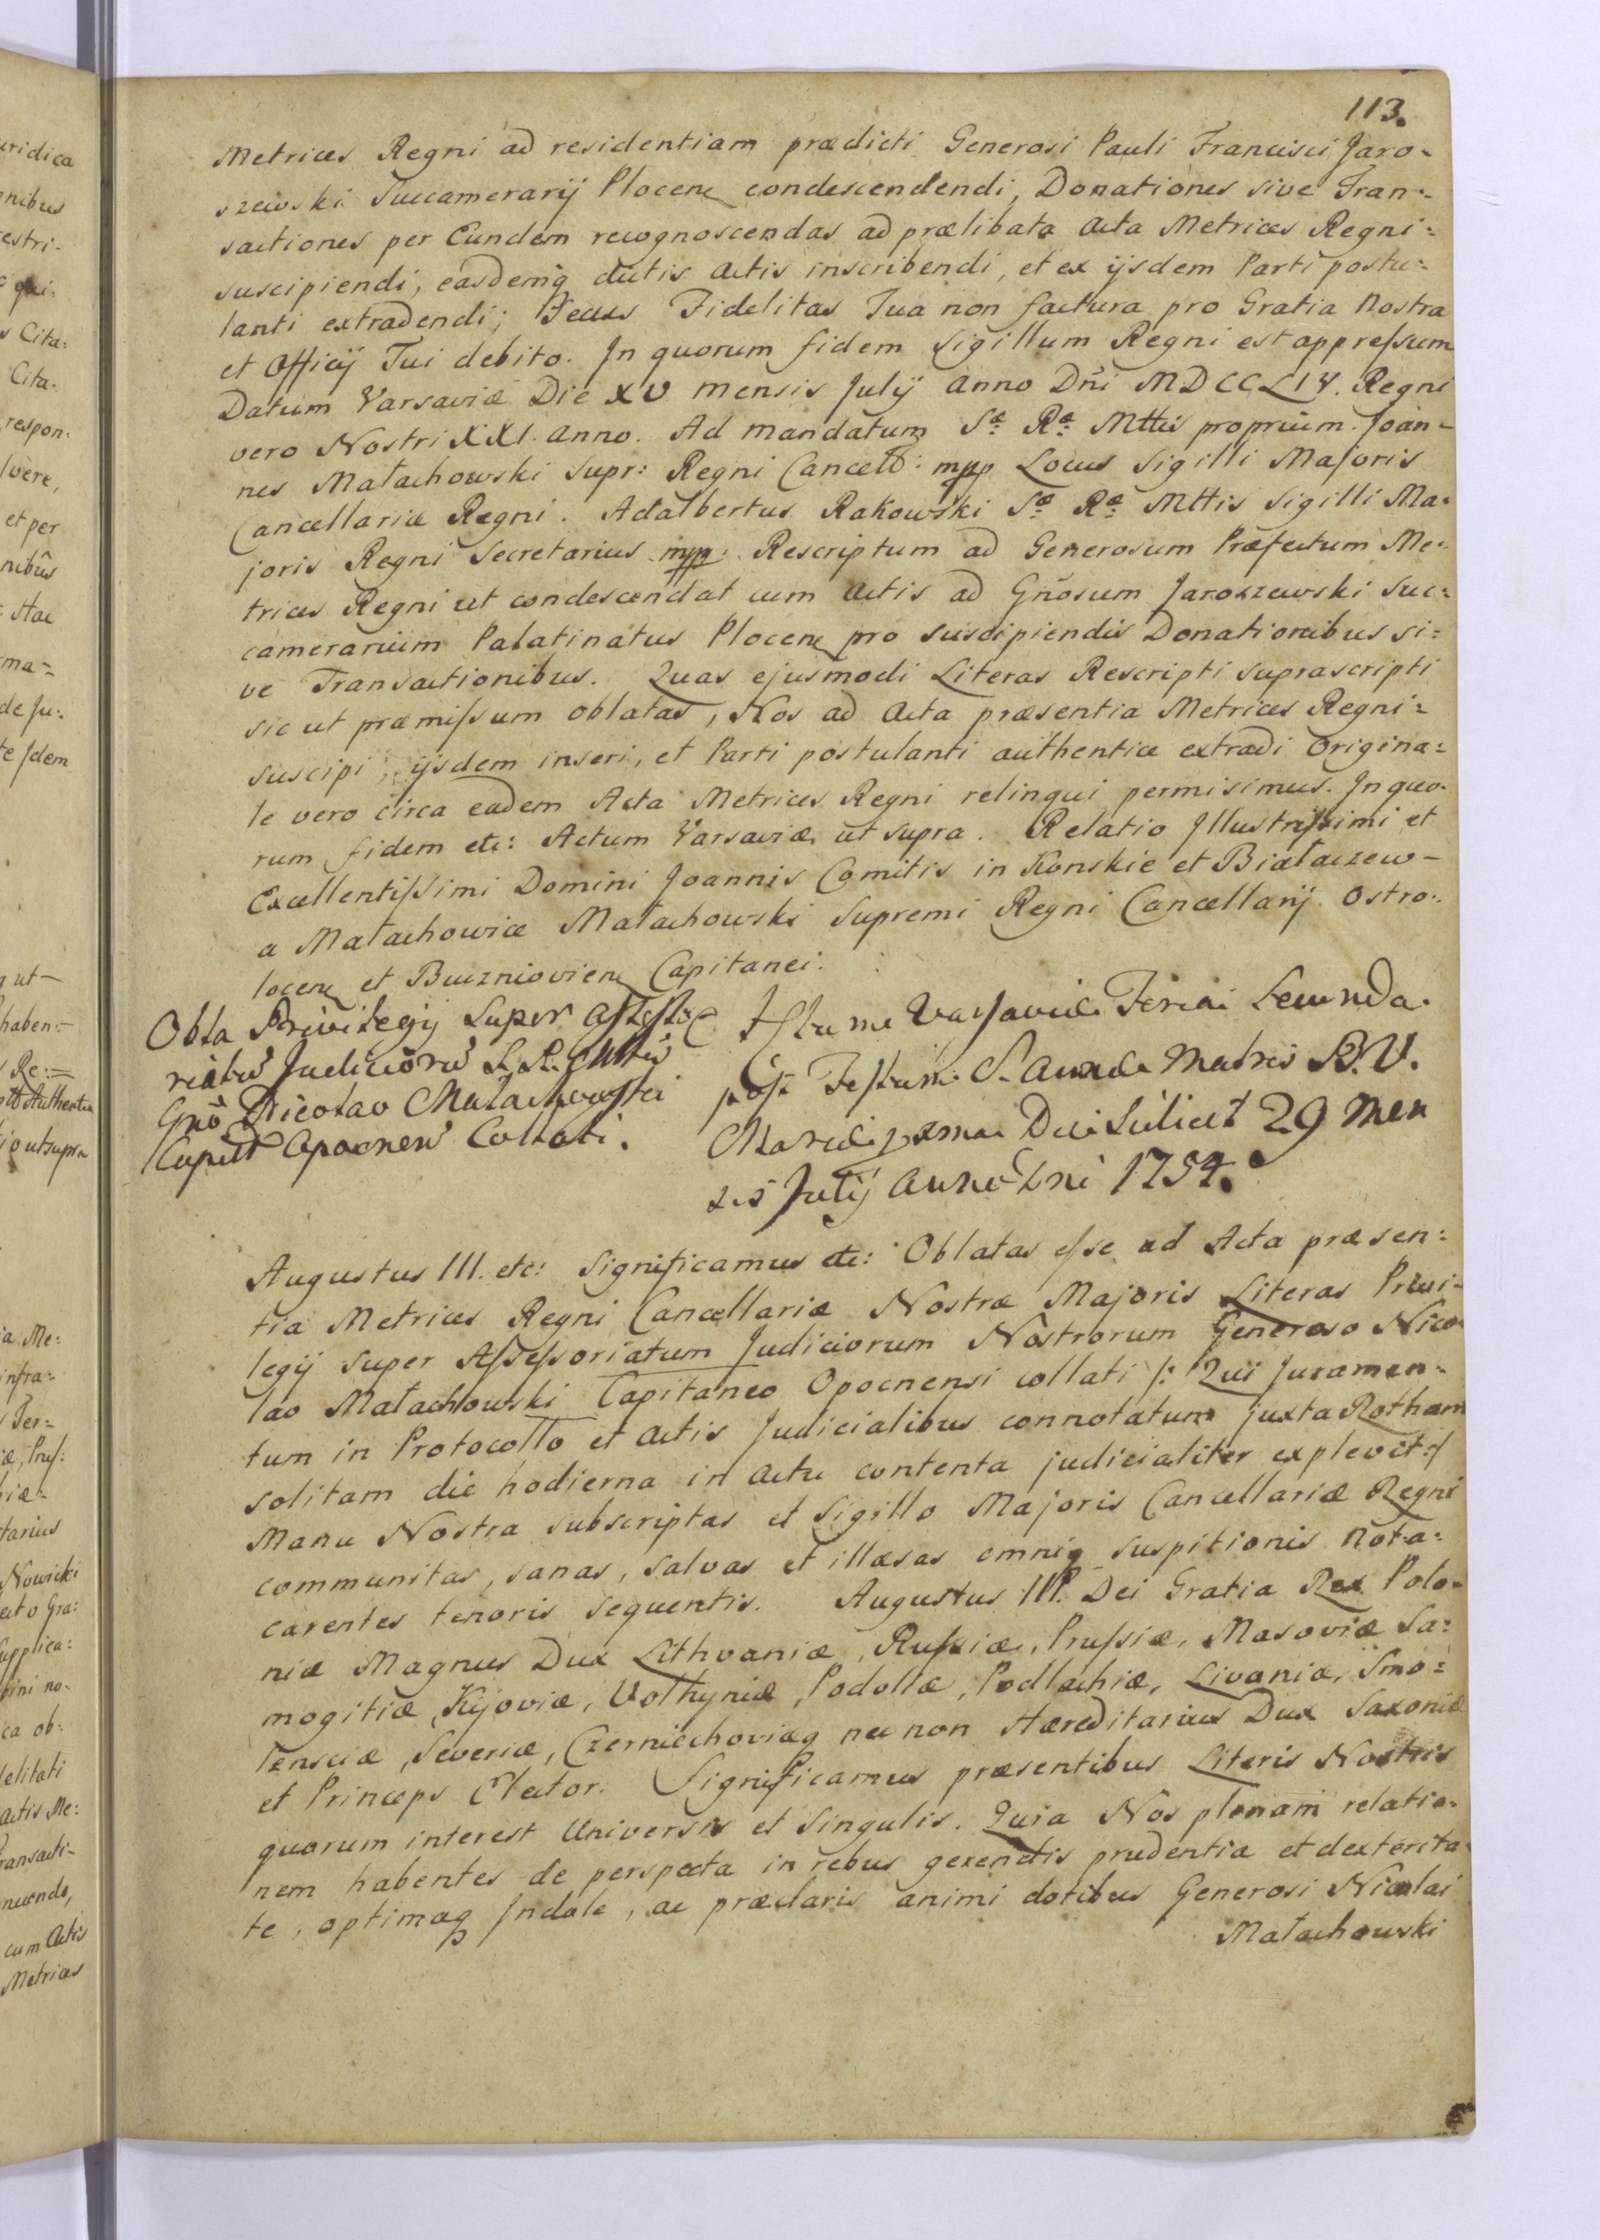 113.
Metrices Regni ad residentiam prædicti Generosi Pauli Francisci Jaro-
szewski Succamerarij Plocen condescendendi, Donationes sive Tran-
sactiones per Eundem recognoscendas ad prælibata Acta Metrices Regni
suscipiendi, easdemq dictis Actis inscribendi, et ex ijsdem Parti postu-
lanti extradendi; Secus Fidelitas Tua non factura pro Gratia Nostra
et Officij Tui debito. In quorum fidem Sigillum Regni est appressum
Datum Varsaviæ Die XV mensis Julij Anno Dñi MDCCLIV. Regni
vero Nostri XXI. Anno. Ad mandatum Sæ Ræ Mttis proprium. Joan-
nes Małachowski Supr: Regni Cancell: mpp Locus Sigilli Majoris
Cancellariæ Regni. Adalbertus Rakowski Sæ Ræ Mttis Sigilli Ma-
joris Regni Secretarius mpp. Rescriptum ad Generosum Præfectum Me-
trices Regni ut condescendat cum Actis ad Gñosum Jaroszewski Suc-
camerarium Palatinatus Plocen pro suscipiendis Donationibus si-
ve Transactionibus. Quas ejusmodi Literas Rescripti suprascripti
sic ut præmissum oblatas, Nos ad Acta præsentia Metrices Regni
suscipi, ijsdem inseri, et Parti postulanti authentice extradi Origina-
le vero circa eadem Acta Metrices Regni relinqui permisimus. In quo-
rum fidem etc: Actum Varsaviæ ut supra. Relatio Illustrissimi et
Excellentissimi Domini Joannis Comitis in Konskie et Białaczew-
a Małachowice Małachowski Supremi Regni Cancellarij Ostro-
locen et Buczniovien Capitanei.
Obta Privilegij Super Assesso
riatū Judiciorū S. R. Mttis
Gnō Nicolao Małachowski
Capitt Opocnen Collati.
Actum Varsaviæ Feria Secunda
post Festum S. Annæ Matris B.V.
Mariæ proxima Die scilicet 29 Men
sis Julij Anno Dni 1754.
Augustus III. etc: Significamus etc: Oblatas esse ad Acta præsen-
tia Metrices Regni Cancellariæ Nostræ Majoris Literas Privi-
legij super Assessoriatum Judiciorum Nostrorum Generoso Nico-
lao Małachowski Capitaneo Opocnensi collati /: Qui Juramen-
tum in Protocollo et Actis Judicialibus connotatum juxta Rotham
solitam die hodierna in Actu contenta judicialiter explevit :/
Manu Nostra subscriptas et Sigillo Majoris Cancellariæ Regni
communitas, sanas, salvas et illæsas omniq suspitionis nota
carentes tenoris sequentis. Augustus III. Dei Gratia Rex Polo-
niæ Magnus Dux Lithvaniæ, Russiæ, Prussiæ, Masoviæ Sa-
mogitiæ, Kijoviæ, Volhyniæ, Podoliæ, Podlachiæ, Livoniæ, Smo-
lensciæ, Severiæ, Czerniechoviæq nec non Hæreditarius Dux Saxoniæ
et Princeps Elector. Significamus præsentibus Literis Nostris
quorum interest Universis et Singulis. Quia Nos plenam relatio-
nem habentes de perspecta in rebus gerendis prudentia et dexterita-
te, optimaq Indole, ac præclaris animi dotibus Generosi Nicolai
Małachowski